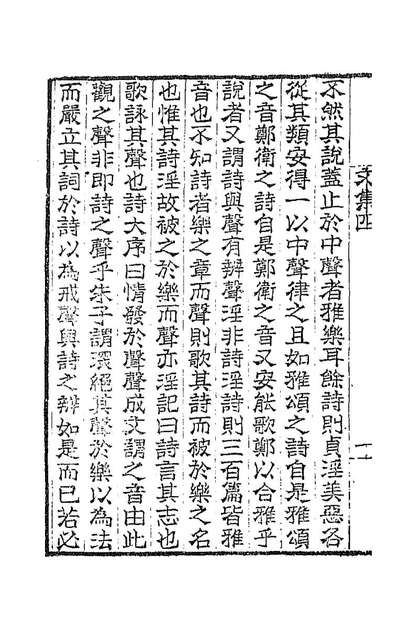 不然其說蓋止於中聲者雅樂耳餘詩則貞淫美惡各
從其類安得一以中聲律之且如雅頌之詩自是雅頌
之音鄭衛之詩自是鄭衛之音又安能歌鄭以合雅乎
說者又謂詩與聲有辨聲淫非詩淫詩則三百篇皆雅
音也不知詩者樂之章而聲則歌其詩而被於樂之名
也惟其詩淫故被之於樂而聲亦淫記曰詩言其志也
歌詠其聲也詩大序曰情發於聲聲成文謂之音由此
觀之聲非即詩之聲乎朱子謂深絕其聲於樂以為法
而嚴立其詞於詩以為戒聲與詩之辨如是而已若必
文集四